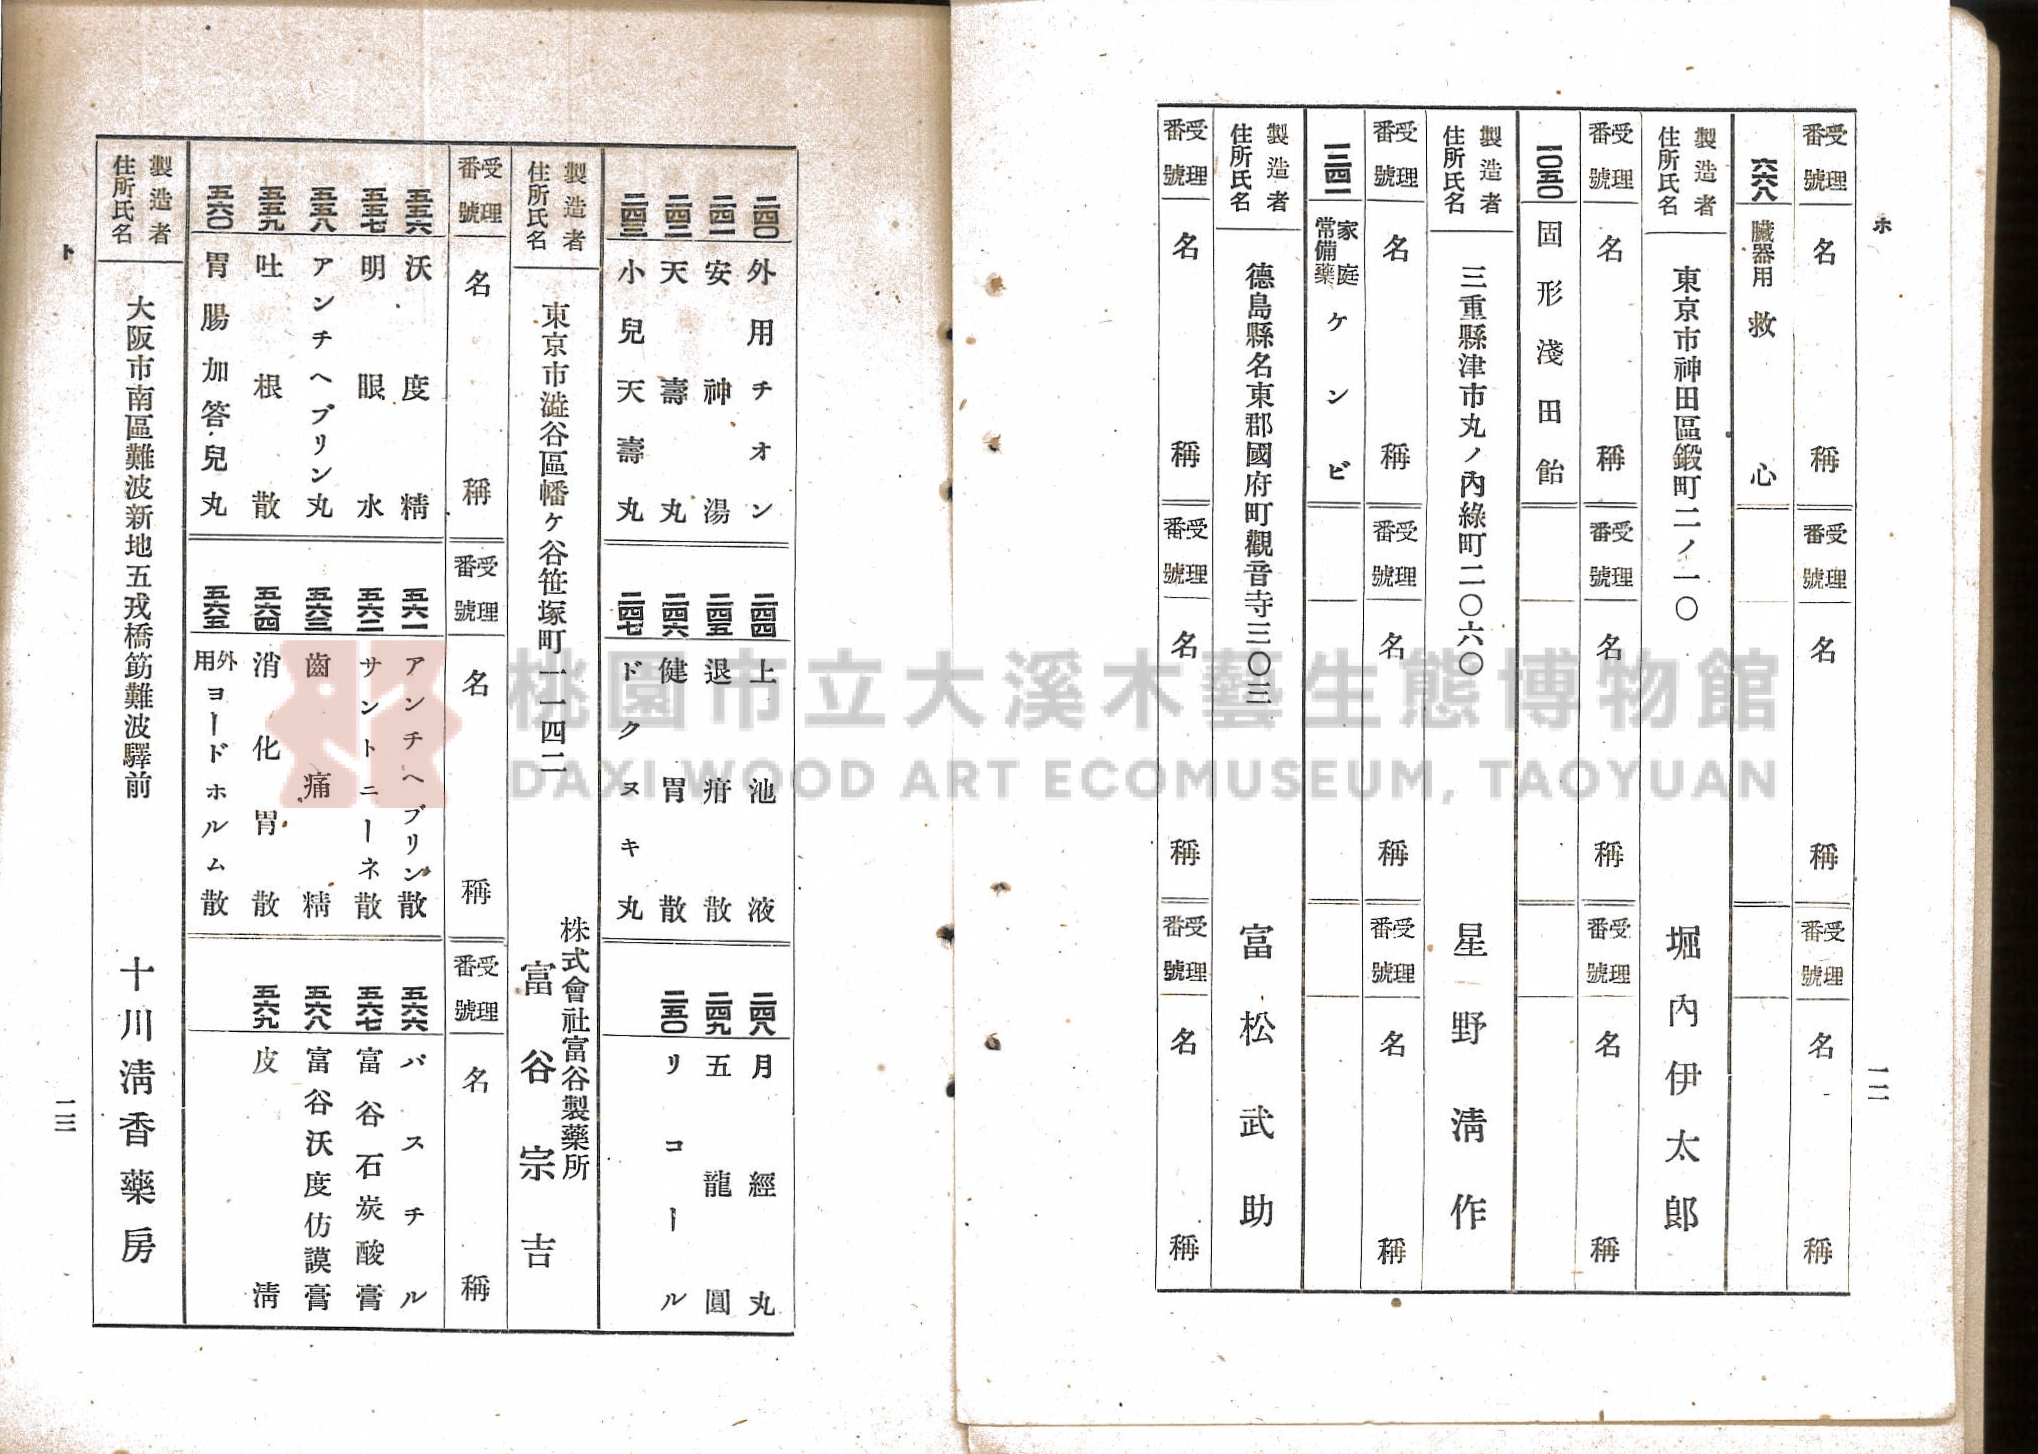 ホ
一二
受理番號 名稱 受理番號 名稱 受理番號 名稱
六六八 臟器用 救心
製造者住所氏名 東京市神田區鍛町二ノ一〇 堀內伊太郎
受理番號 名稱 受理番號 名稱 受理番號 名稱
一〇五〇 固形淺田飴
製造者住所氏名 三重縣津市丸ノ內綠町二〇六〇 星野淸作
受理番號 名稱 受理番號 名稱 受理番號 名稱
一二四一 家庭常備藥 ケンビ
製造者住所氏名 德島縣名東郡國府町觀音寺三〇三 富松武助
受理番號 名稱 受理番號 名稱 受理番號 名稱
二四〇 外用チオン 二四四 上池液 二四八 月經丸
二四一 安神湯 二四五 退疳散 二四九 五龍圓
二四二 天壽丸 二四六 健胃散 二五〇 リコール
二四三 小兒天壽丸 二四七 ドクヌキ丸
製造者住所氏名 東京市澁谷區幡ケ谷笹塚町一一四二 株式會社富谷製藥所 富谷宗吉
受理番號 名稱 受理番號 名稱 受理番號 名稱
五五六 沃度精 五六一 アンチヘブリン散 五六六 バスチル
五五七 明眼水 五六二 サントニーネ散 五六七 富谷石炭酸膏
五五八 アンチヘブリン丸 五六三 齒痛精 五六八 富谷沃度仿謨膏
五五九 吐根散 五六四 消化胃散 五六九 皮淸
五六〇 胃腸加答兒丸 五六五 外用ヨードホルム散
製造者住所氏名 大阪市南區難波新地五戎橋筋難波驛前 十川淸香藥房
ト
一三
桃園市立大溪木藝生態博物館
DAXI WOOD ART ECOMUSEUM, TAOYUAN